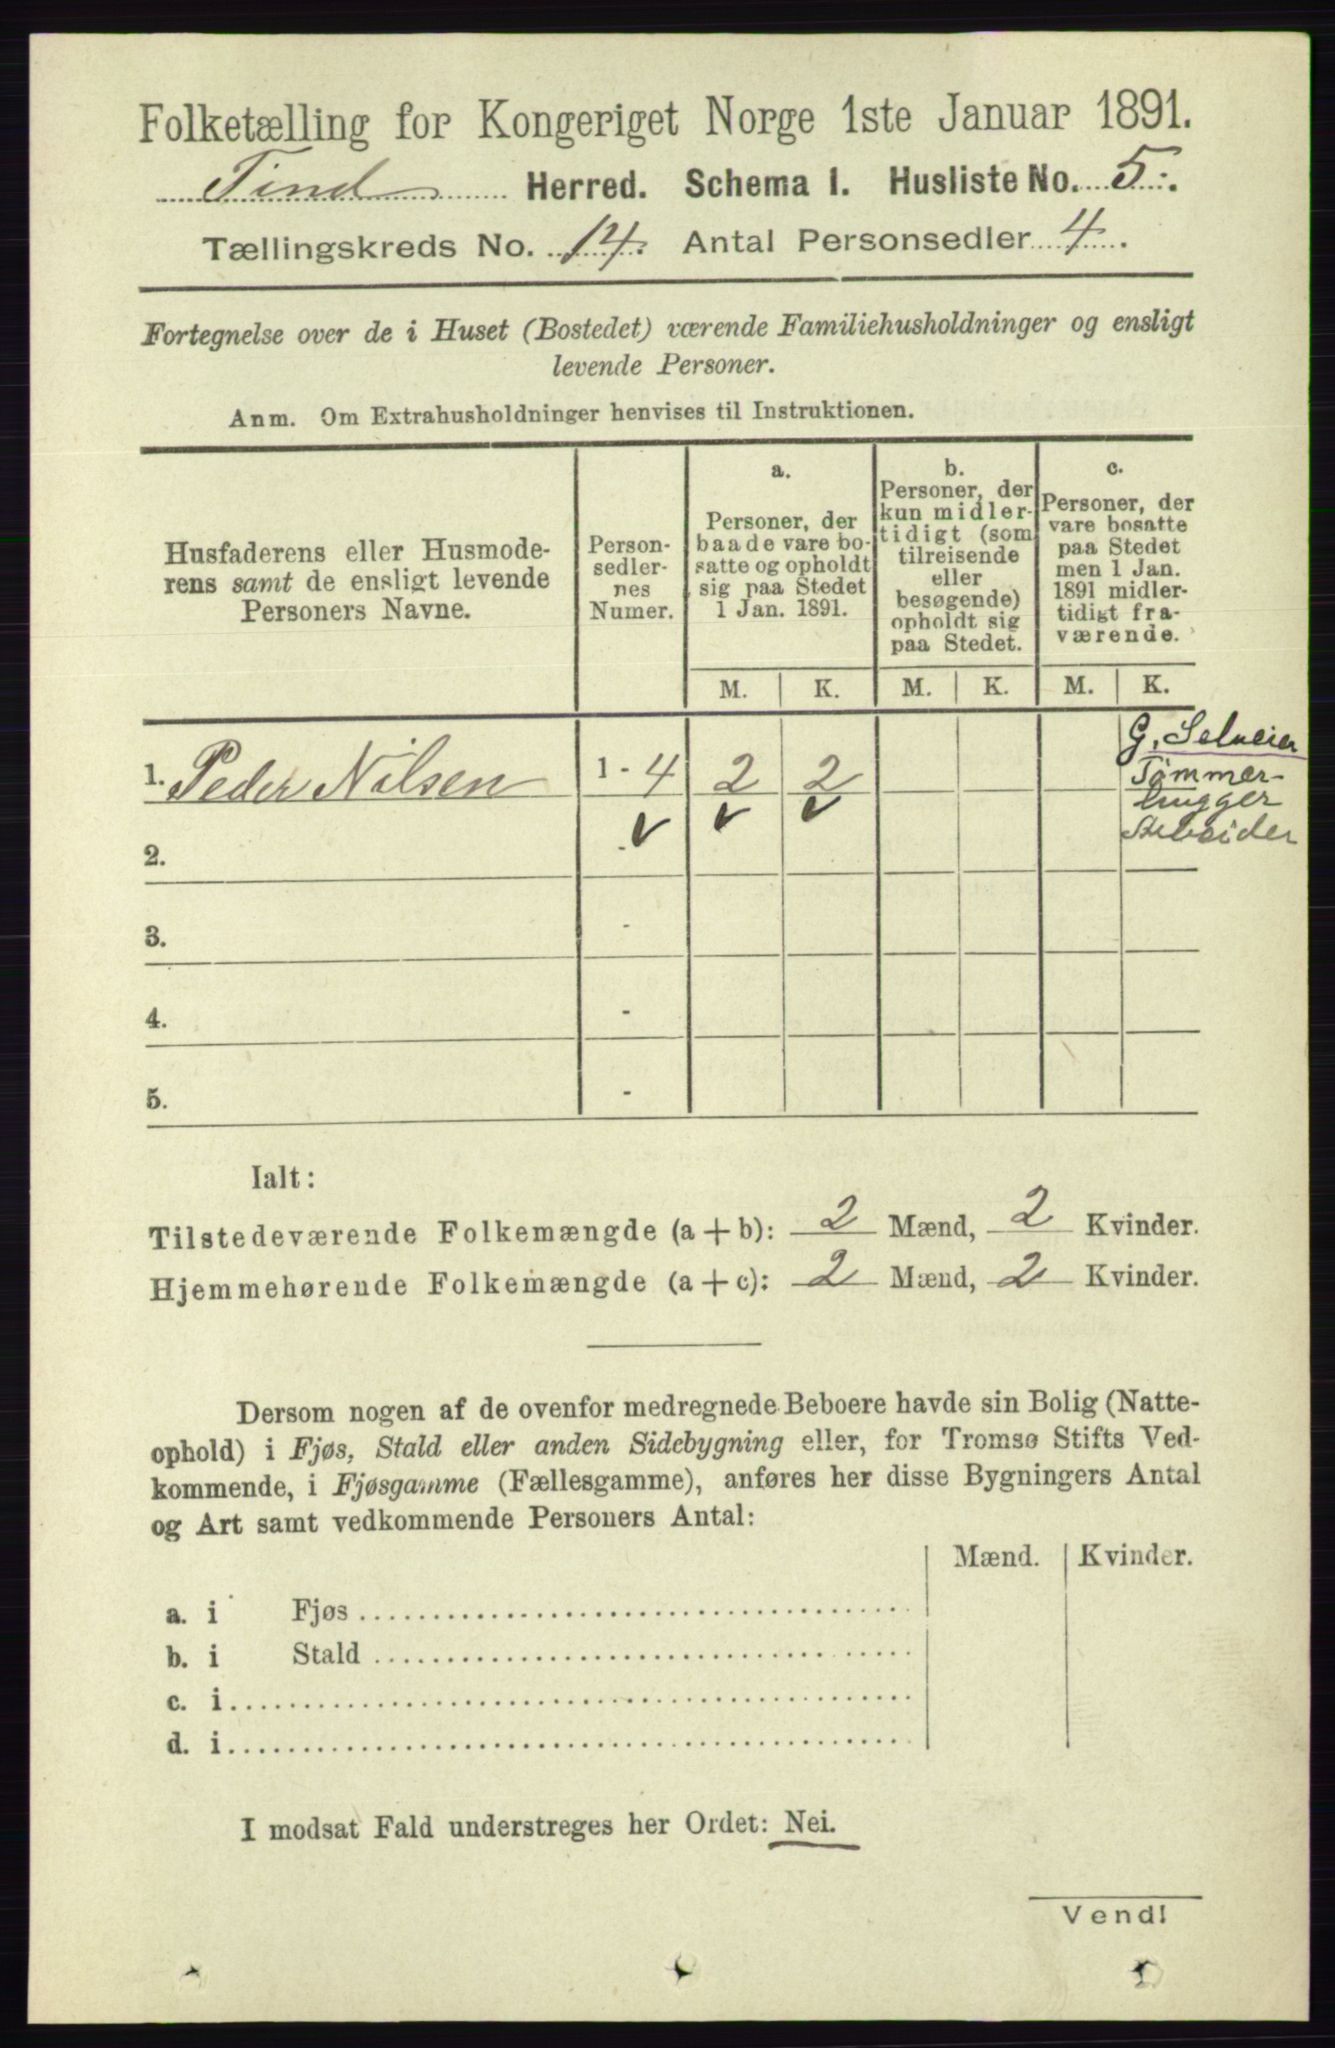 Folketælling for Kongeriget Norge 1ste Januar 1891.
Tind Herred. Schema 1. Husliste No. 5.
Tællingskreds No. 14. Antal Personsedler 4.
Fortegnelse over de i Huset (Bostedet) værende Familiehusholdninger og ensligt
levende Personer.
Anm. Om Extrahusholdninger henvises til Instruktionen.
Husfaderens eller Husmode-
rens samt de ensligt levende
Personers Navne.
Person-
sedler-
nes
Numer.
a.
Personer, der
baade vare bo-
satte og opholdt
sig paa Stedet
1 Jan. 1891.
b.
Personer, der
kun midler-
tidigt (som
tilreisende
eller
besøgende)
opholdt sig
paa Stedet.
c.
Personer, der
vare bosatte
paa Stedet
men 1 Jan.
1891 midler-
tidigt fra-
værende.
M. K. M. K. M. K.
1. Peder Nilsen 1 - 4 2 2
G. Selveier
Tömmer-
hugger
Arbeider
2.
3. -
4. -
5. -
Ialt:
Tilstedeværende Folkemængde (a + b): 2 Mænd, 2 Kvinder.
Hjemmehørende Folkemængde (a + c): 2 Mænd, 2 Kvinder.
Dersom nogen af de ovenfor medregnede Beboere havde sin Bolig (Natte-
ophold) i Fjøs, Stald eller anden Sidebygning eller, for Tromsø Stifts Ved-
kommende, i Fjøsgamme (Fællesgamme), anføres her disse Bygningers Antal
og Art samt vedkommende Personers Antal:
Mænd. Kvinder.
a. i Fjøs
b. i Stald
c. i
d. i
I modsat Fald understreges her Ordet: Nei.
Vend!